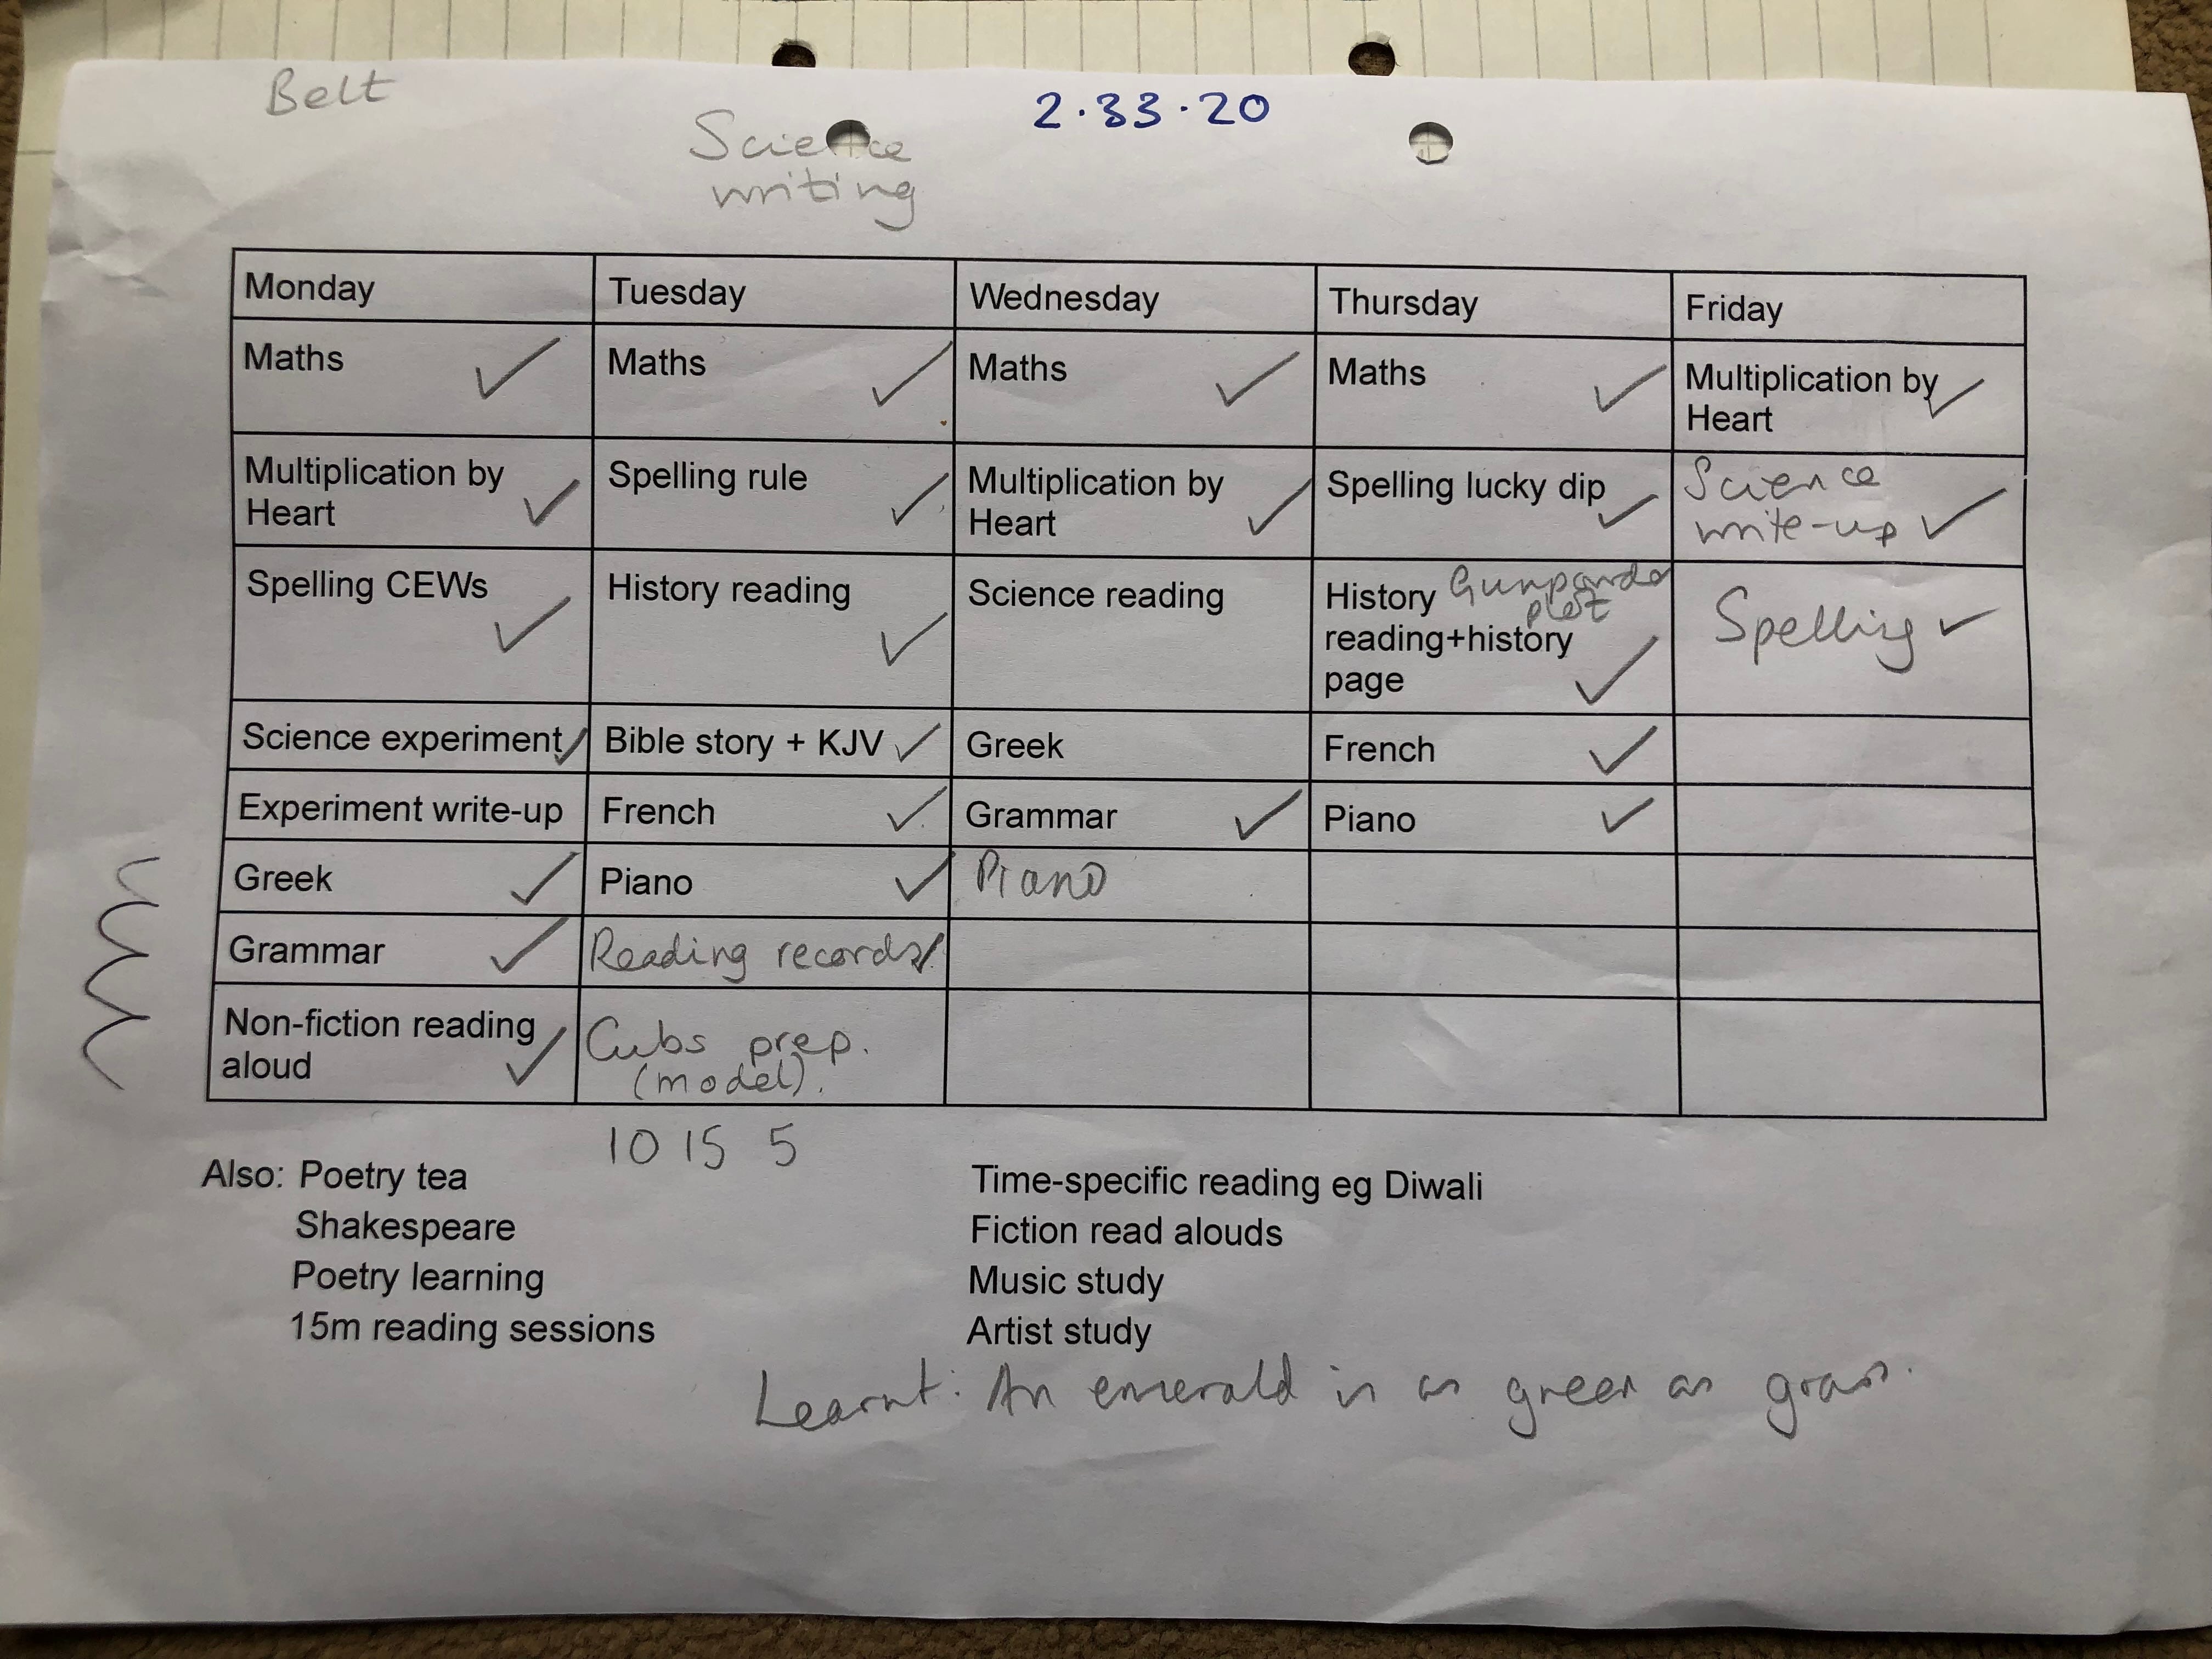 Belt
2.33.20
Science
writing
Monday Tuesday Wednesday Thursday Friday
Maths ✓ Maths ✓ Maths ✓ Maths ✓ Multiplication by
Heart ✓
Multiplication by
Heart ✓ Spelling rule ✓ Multiplication by
Heart ✓ Spelling lucky dip ✓ Science
write-up ✓
Spelling CEWs ✓ History reading ✓ Science reading History Gunpowder
plot
reading+history
page ✓ Spelling ✓
Science experiment ✓ Bible story + KJV ✓ Greek French ✓
Experiment write-up French ✓ Grammar ✓ Piano ✓
Greek ✓ Piano ✓ Piano
Grammar ✓ Reading records ✓
Non-fiction reading
aloud ✓ Cubs prep.
(model).
10 15 5
Also: Poetry tea
Shakespeare
Poetry learning
15m reading sessions
Time-specific reading eg Diwali
Fiction read alouds
Music study
Artist study
Learnt: An emerald is as green as grass.